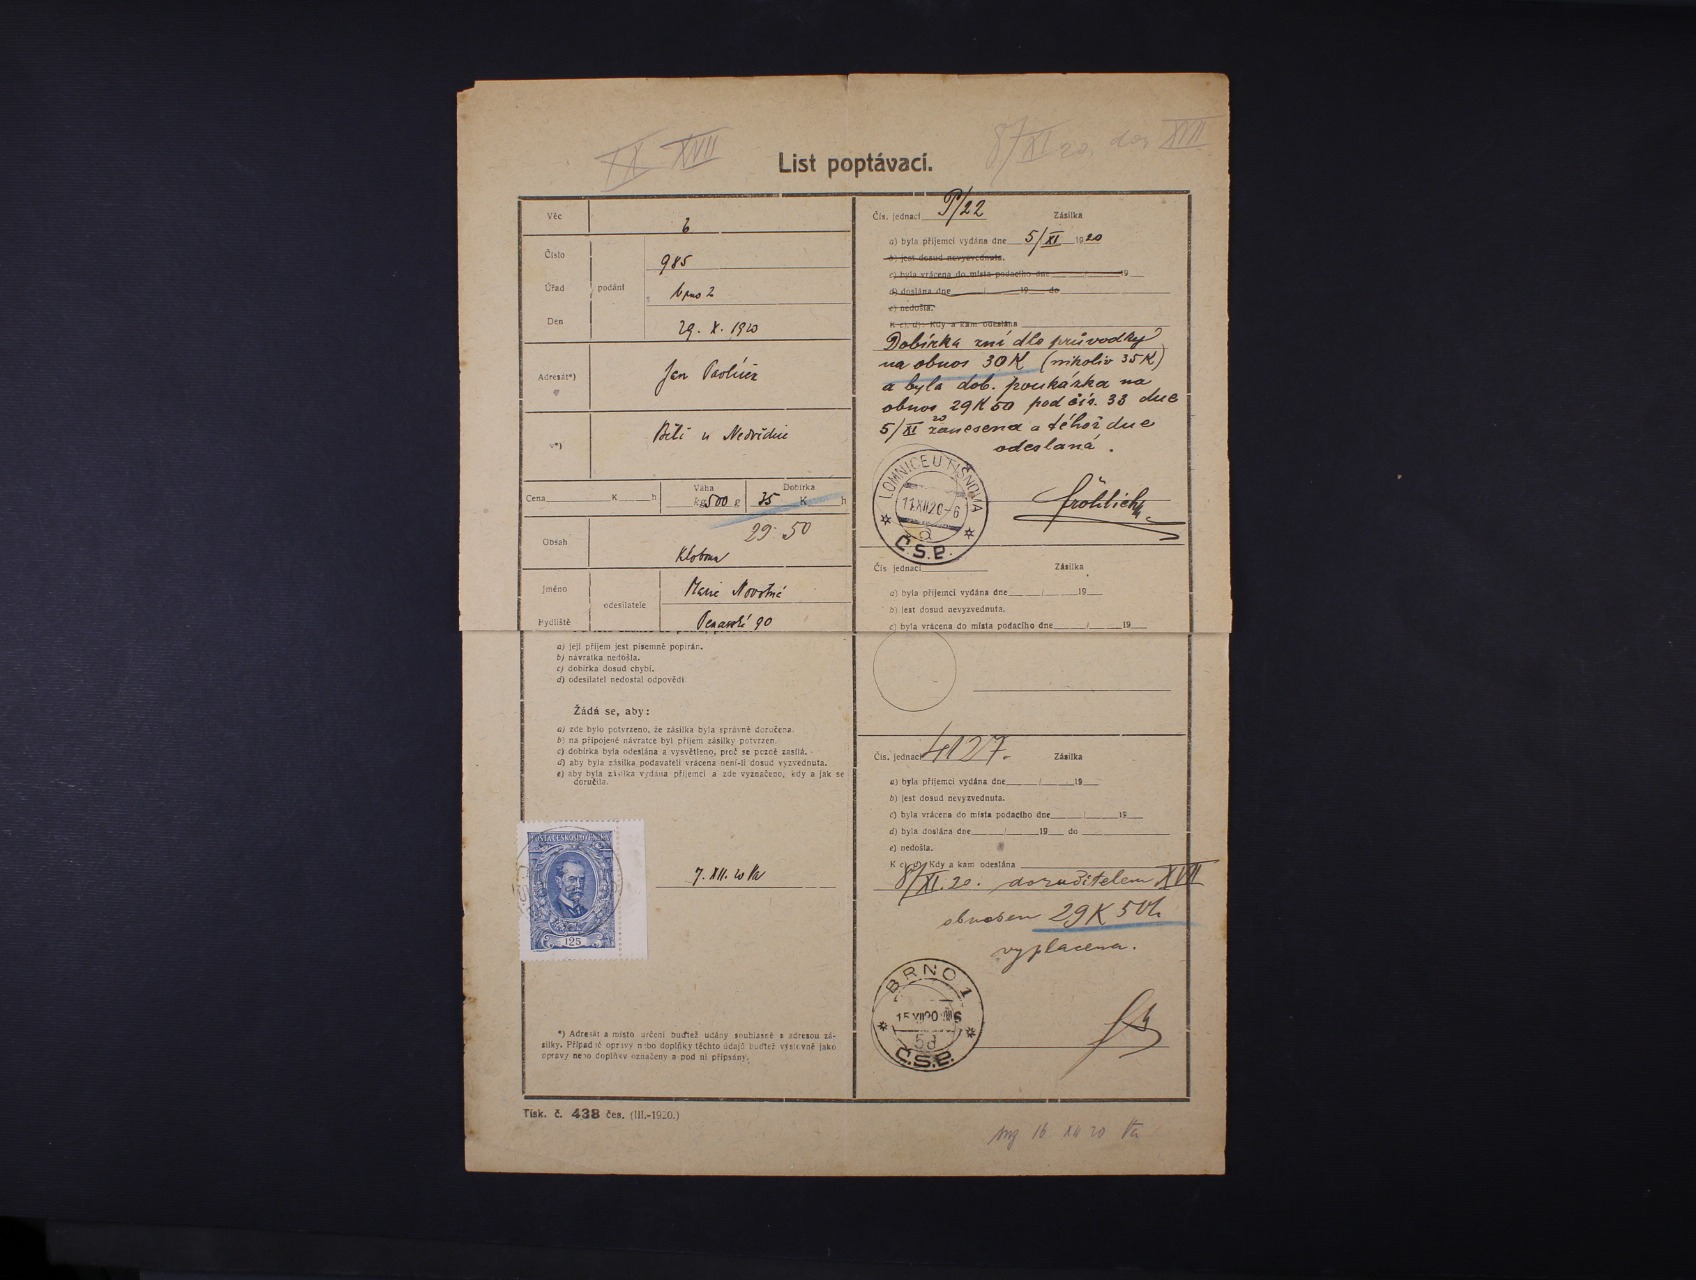 IX XVII
8/XI 20, dor XVII
List poptávací.
Věc
6
Číslo
985
Úřad podání
Brno 2
Den
29. X. 1920
Adresát*)
Jan
v*)
Bílí u Nedvědice
Cena K h
Váha
kg 500 g
Dobírka
35 K h
29·50
Obsah
Klobou
Jméno
odesílatele
Marie Novotná
Bydliště
90
a) její příjem jest písemně popírán.
b) návratka nedošla.
c) dobírka dosud chybí.
d) odesílatel nedostal odpovědi
Žádá se, aby:
a) zde bylo potvrzeno, že zásilka byla správně doručena.
b) na připojené návratce byl příjem zásilky potvrzen.
c) dobírka byla odeslána a vysvětleno, proč se pozdě zasílá.
d) aby byla zásilka podavateli vrácena není-li dosud vyzvednuta.
e) aby byla zásilka vydána příjemci a zde vyznačeno, kdy a jak se
doručila.
POŠTA ČESKOSLOVENSKÁ
125
7. XII. 20
*) Adresát a místo určení buďtež udány souhlasně s adresou zá-
silky. Případné opravy nebo doplňky těchto údajů buďtež výslovně jako
opravy nebo doplňky označeny a pod ní připsány.
Tisk. č. 438 čes. (III.-1920.)
Čís. jednací P/22 Zásilka
a) byla příjemci vydána dne 5/XI 1920
b) jest dosud nevyzvednuta.
c) byla vrácena do místa podacího dne / 19
d) doslána dne / 19 do
e) nedošla.
K c), d): Kdy a kam odeslána
Dobírka zní dle průvodky
na obnos 30 K (nikoliv 35 K)
a byla dob. poukázka na
obnos 29 K 50 pod čís. 33 dne
5/XI 20 zanesena a téhož dne
odeslaná.
LOMNICE U TIŠNOVA
11.XII.20-6
a
Č.S.P.
Fröhlich
Čís jednací Zásilka
a) byla příjemci vydána dne / 19
b) jest dosud nevyzvednuta.
c) byla vrácena do místa podacího dne / 19
Čís. jednací 4127. Zásilka
a) byla příjemci vydána dne / 19
b) jest dosud nevyzvednuta.
c) byla vrácena do místa podacího dne / 19
d) byla doslána dne / 19 do
e) nedošla.
K c), d): Kdy a kam odeslána
8/XI. 20. doručitelem XVII
obnosem 29 K 50 h
vyplacena.
BRNO 1
15 XII 20
5d
Č.S.P.
16. XII 20